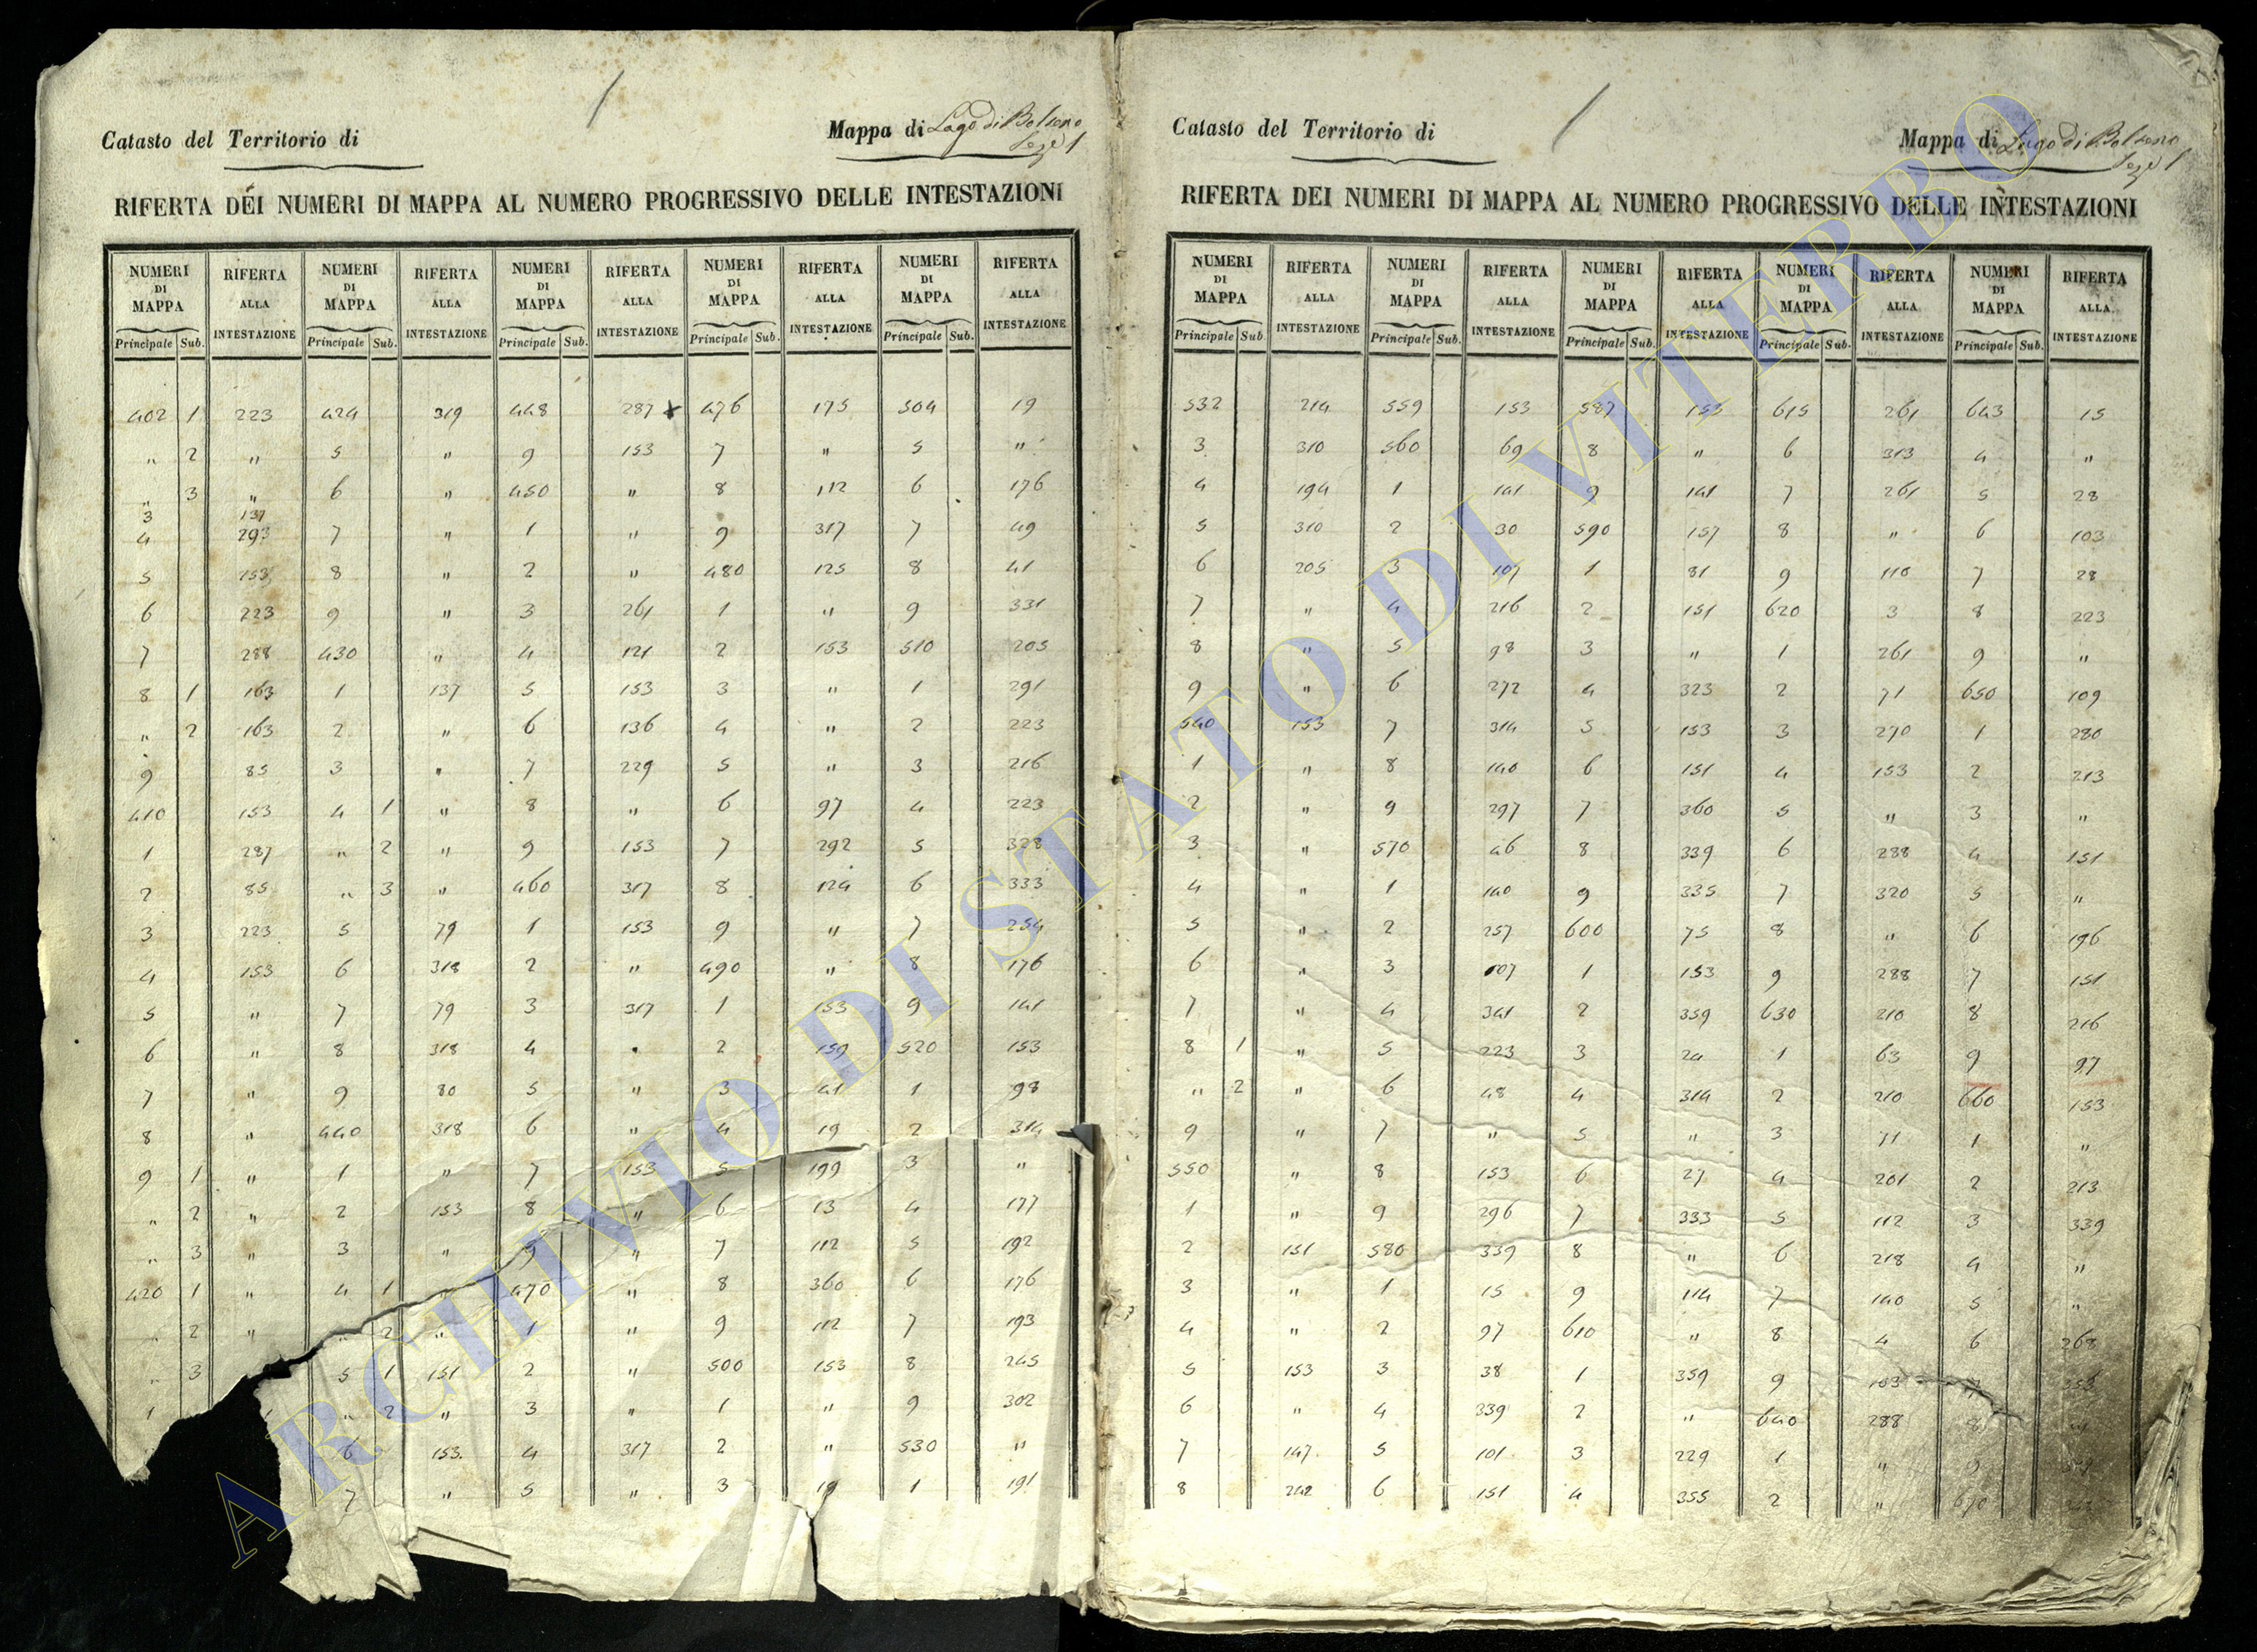 Catasto del Territorio di
Mappa di Lago di Bolseno
Sez.e 1
RIFERTA DEI NUMERI DI MAPPA AL NUMERO PROGRESSIVO DELLE INTESTAZIONI
NUMERI DI MAPPA RIFERTA ALLA INTESTAZIONE NUMERI DI MAPPA RIFERTA ALLA INTESTAZIONE NUMERI DI MAPPA RIFERTA ALLA INTESTAZIONE NUMERI DI MAPPA RIFERTA ALLA INTESTAZIONE NUMERI DI MAPPA RIFERTA ALLA INTESTAZIONE
Principale Sub. Principale Sub. Principale Sub. Principale Sub. Principale Sub.
402 1 223 424 319 448 287 x 476 175 504 19
" 2 " 5 " 9 153 7 " 5 "
" 3 " 6 " 450 " 8 112 6 176
3 137
4 293 7 " 1 " 9 317 7 49
5 153 8 " 2 " 480 125 8 41
6 223 9 " 3 261 1 " 9 331
7 288 430 " 4 121 2 153 510 205
8 1 163 1 137 5 153 3 " 1 291
" 2 163 2 " 6 136 4 " 2 223
9 85 3 " 7 229 5 " 3 216
410 153 4 1 " 8 " 6 97 4 223
1 287 " 2 " 9 153 7 292 5 328
2 85 " 3 " 460 317 8 124 6 333
3 223 5 79 1 153 9 " 7 254
4 153 6 318 2 " 490 " 8 176
5 " 7 79 3 317 1 153 9 141
6 " 8 318 4 " 2 159 520 153
7 " 9 80 5 " 3 41 1 98
8 " 440 318 6 " 4 19 2 314
9 1 " 1 " 7 153 5 199 3 "
" 2 " 2 153 8 " 6 13 4 177
" 3 " 3 " 9 " 7 112 5 192
420 1 " 4 1 " 470 " 8 360 6 176
" 2 " " 2 " 1 " 9 112 7 193
" 3 5 1 151 2 " 500 153 8 245
1 " 2 " 3 " 1 " 9 302
6 153 4 317 2 " 530 "
7 " 5 " 3 19 1 191
Catasto del Territorio di
Mappa di Lago di Bolseno
Sez.e 1
RIFERTA DEI NUMERI DI MAPPA AL NUMERO PROGRESSIVO DELLE INTESTAZIONI
NUMERI DI MAPPA RIFERTA ALLA INTESTAZIONE NUMERI DI MAPPA RIFERTA ALLA INTESTAZIONE NUMERI DI MAPPA RIFERTA ALLA INTESTAZIONE NUMERI DI MAPPA RIFERTA ALLA INTESTAZIONE NUMERI DI MAPPA RIFERTA ALLA INTESTAZIONE
Principale Sub. Principale Sub. Principale Sub. Principale Sub. Principale Sub.
532 214 559 153 587 153 615 261 643 15
3 310 560 69 8 " 6 313 4 "
4 194 1 141 9 141 7 261 5 28
5 310 2 30 590 157 8 " 6 103
6 205 3 107 1 81 9 110 7 28
7 " 4 216 2 151 620 3 8 223
8 " 5 98 3 " 1 261 9 "
9 " 6 272 4 323 2 71 650 109
540 153 7 314 5 153 3 270 1 280
1 " 8 140 6 151 4 153 2 213
2 " 9 297 7 360 5 " 3 "
3 " 570 46 8 339 6 288 4 151
4 " 1 140 9 335 7 320 5 "
5 " 2 257 600 75 8 " 6 196
6 " 3 107 1 153 9 288 7 151
7 " 4 341 2 359 630 210 8 216
8 1 " 5 223 3 24 1 63 9 97
" 2 " 6 48 4 314 2 210 660 153
9 " 7 " 5 " 3 71 1 "
550 " 8 153 6 27 4 201 2 213
1 " 9 296 7 333 5 112 3 339
2 151 580 339 8 " 6 218 4 "
3 " 1 15 9 114 7 140 5 "
4 " 2 97 610 " 8 4 6 268
5 153 3 38 1 359 9 163 7
6 " 4 339 2 " 640 288 8
7 147 5 101 3 229 1 " 9
8 242 6 151 4 355 2 " 670
ARCHIVIO DI STATO DI VITERBO